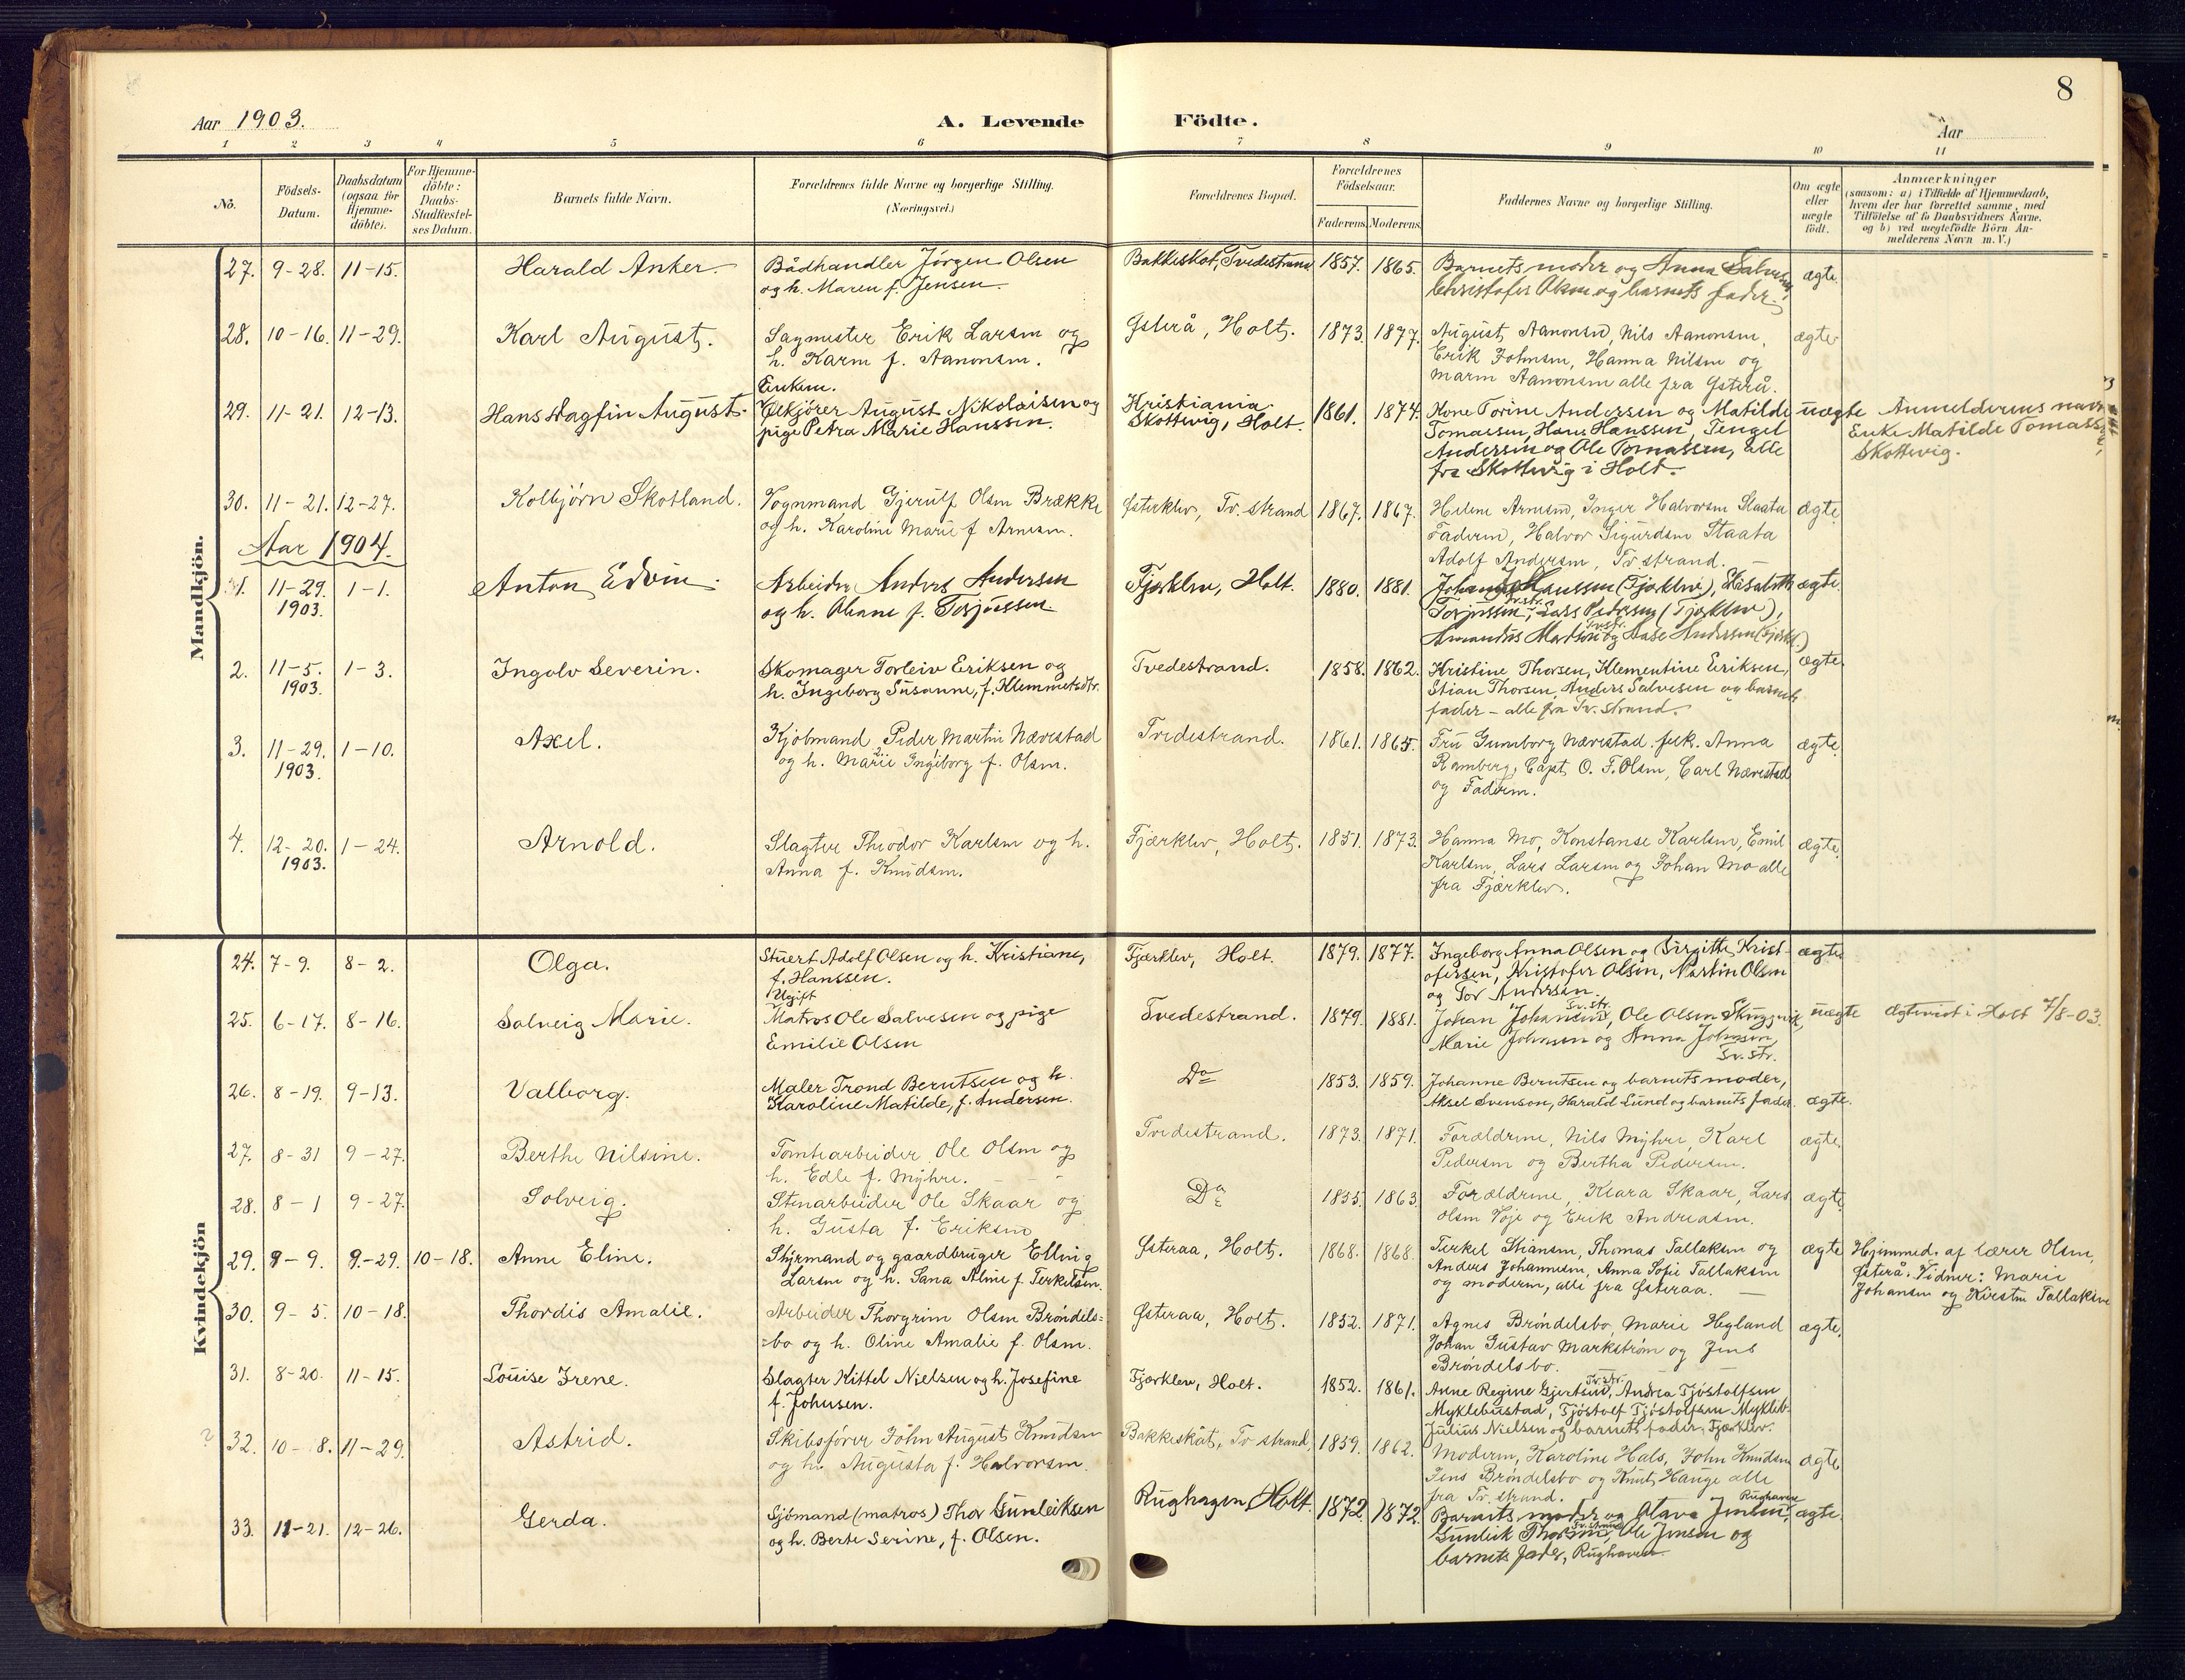 8
Aar 1903.
A. Levende Födte.
Aar
1 2 3 4 5 6 7 8 9 10 11
No.
Födsels-
Datum.
Daabsdatum
(ogsaa for
Hjemme-
döbte).
For Hjemme-
döbte:
Daabs-
Stadfestel-
ses Datum.
Barnets fulde Navn.
Forældrenes fulde Navne og borgerlige Stilling.
(Næringsvei.)
Forældrenes Bopæl.
Forældrenes
Födselsaar.
Faderens. Moderens.
Faddernes Navne og borgerlige Stilling.
Om ægte
eller
uægte
födt.
Anmærkninger
(saasom: a) i Tilfælde af Hjemmedaab,
hvem der har forrettet samme, med
Tilföielse af to Daabsvidners Navne,
og b) ved uægtefödte Börn An-
melderens Navn m. V.)
Mandkjön.
27. 9-28. 11-15. Harald Anker. Bådhandler Jörgen Olsen Bakkeskot, Tvedestrand 1857. 1865. Barnets moder og Anna Salvesen, ægte.
og h. Maren f. Jensen. Christofer og barnets fader.
28. 10-16. 11-29. Karl August. Sagmester Erik Larsen og Østerå, Holt. 1873. 1877. August Aanonsen, Nils Aanonsen, ægte
h. Karen f. Aanonsen. Erik Johnsen, Hanna Nilsen og
Maren Aanonsen alle fra Østerå.
Enkem.
29. 11-21. 12-13. Hans Dagfin August. Ølkjörer August Nikolaisen og Kristiania. 1861. 1874. Kone Torine Andersen og Matilde uægte Anmelderens navn
pige Petra Marie Hanssen. Skottevig, Holt. Tomassen, Hans Hanssen, Tengel Enke Matilde Tomassen,
Andersen og Ole Tomassen, alle Skottevig.
fra Skottevig i Holt.
30. 11-21. 12-27. Kolbjörn Skotland. Vognmand Gjerulf Olsen Brække Østerklev, Tv.strand 1867. 1867. Helene Arnesen, Inger Halvorsen Staata ægte
og h. Karoline Marie f. Arnesen. Faderen, Halvor Sigurdsen Staata
Adolf Andersen, Tv.strand.
Aar 1904.
1. 11-29. 1-1. Anton Edvin. Arbeider Anders Andersen Fjærklev, Holt. 1880. 1881. Hanssen (Fjærklev), Elisabeth ægte.
1903. og h. f. Torjussen Torjussen, Tv.str. Lars Pedersen (Fjærklev),
Amandus Madsen Tv.str. og Aase Andersen (Fjærkl.)
2. 11-5. 1-3. Ingolv Severin. Skomager Torleiv Eriksen og Tvedestrand. 1858. 1862. Kristine Thorsen, Klementine Eriksen, ægte
1903. h. Ingeborg Susanne, f. Klemmetsdtr. Stian Thorsen, Anders Salvesen og barnets
fader - alle fra Tv.strand.
3. 11-29. 1-10. Axel. Kjöbmand Peder Martin Nærestad Tvedestrand. 1861. 1865. Fru Gunnborg Nærestad, frk. Anna ægte.
1903. og h. Marie Ingeborg f. Olsen. Ramberg, Capt. O. F. Olsen, Carl Nærestad
og Faderen.
4. 12-20. 1-24. Arnold. Slagter Theodor Karlsen og h. Fjærklev, Holt. 1851. 1873. Hanna Mo, Konstanse Karlsen, Emil ægte.
1903. Anna f. Knudsen. Karlsen, Lars Larsen og Johan Mo alle
fra Fjærklev.
Kvindekjön
24. 7-9. 8-2. Olga. Stuert Adolf Olsen og h. Kristiane, Fjærklev, Holt. 1879. 1877. Ingeborg Anna Olsen og Birgitte Krist- ægte
f. Hanssen. ofersen, Kristofer Olsen, Martin Olsen
og Tor Andersen.
Ugift
25. 6-17. 8-16. Solveig Marie. Matros Ole Salvesen og pige Tvedestrand. 1879. 1881. Johan Johansen, Tv.str. Ole Olsen Skuggevik, uægte Ægteviet i Holt 7/8-03.
Emilie Olsen Marie Johnsen og Anna Johnsen,
Tv.str.
26. 8-19. 9-13. Valborg. Maler Trond Berntsen og h. Do 1853. 1859. Johanne Berntsen og barnets moder,
Karoline Matilde, f. Andersen. Aksel Svenson, Harald Lund og barnets fader. ægte.
27. 8-31 9-27. Berthe Nilsine. Tomtearbeider Ole Olsen og Tvedestrand. 1873. 1871. Forældrene, Nils Myhre, Karl ægte
h. Edle f. Myhre. Pedersen og Bertha Pedersen.
28. 8-1 9-27. Solveig. Stenarbeider Ole Skaar og Do 1855. 1863. Forældrene, Klara Skaar, Lars ægte
h. Gusta f. Eriksen Olsen Voje og Erik Andreasen.
29. 9-9. 9-29. 10-18. Anne Eline. Styrmand og gaardbruger Elling Østeraa, Holt. 1868. 1868. Terkel Stiansen, Thomas Tallaksen og ægte Hjemmed. af lærer Olsen,
Larsen og h. Sana Aline f. Terkelsen. Anders Johannesen, Anna Sofie Tallaksen Østerå. Vidner: Marie
og moderen, alle fra Østeraa. Johansen og Kirsten Tallaksen
30. 9-5. 10-18. Thordis Amalie. Arbeider Thorgrim Olsen Bröndels- Østeraa, Holt. 1852. 1871. Agnes Bröndelsbo, Marie Hegland ægte.
bo og h. Oline Amalie f. Olsen. Johan Gustav Markström og Jens
Bröndelsbo.
31. 8-20. 11-15. Louise Irene. Slagter Kittel Nielsen og h. Josefine Fjærklev, Holt. 1852. 1861. Anne Regine Gjertsen, Tv.str. Andrea Tjöstolfsen
f. Johnsen. Myklebustad, Tjöstolf Tjöstolfsen Mykleb.
Julius Nielsen og barnets fader, Fjærklev.
? 32. 10-8. 11-29. Astrid. Skibsförer John August Knudsen Bakkeskåt, Tv strand, 1859. 1862. Moderen, Karoline Hals, John Knudsen ægte
og h. Augusta f. Halvorsen. Jens Bröndelsbo og Knut Hauge alle
fra Tv.strand.
33. 11-21. 12-26. Gerda. Sjömand (matros) Thor Gunleiksen Rughagen, Holt. 1872. 1872. Barnets moder og Olava Jensen, Rughaven ægte.
og h. Berte Serine, f. Olsen. Gunleik Thorsen, Tv.strand Ole Jensen og
barnets fader, Rughaven.